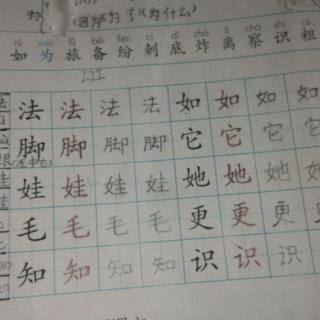 为
rú wèi lǚ bèi fēn cì dǐ zhà lí chá shí cū
如为旅备纷刺底炸离察识粗
222
法法法法如如如如
脚脚脚脚它它它它
娃娃娃娃她她她她
毛毛毛毛更更更更
知知知知识识识识